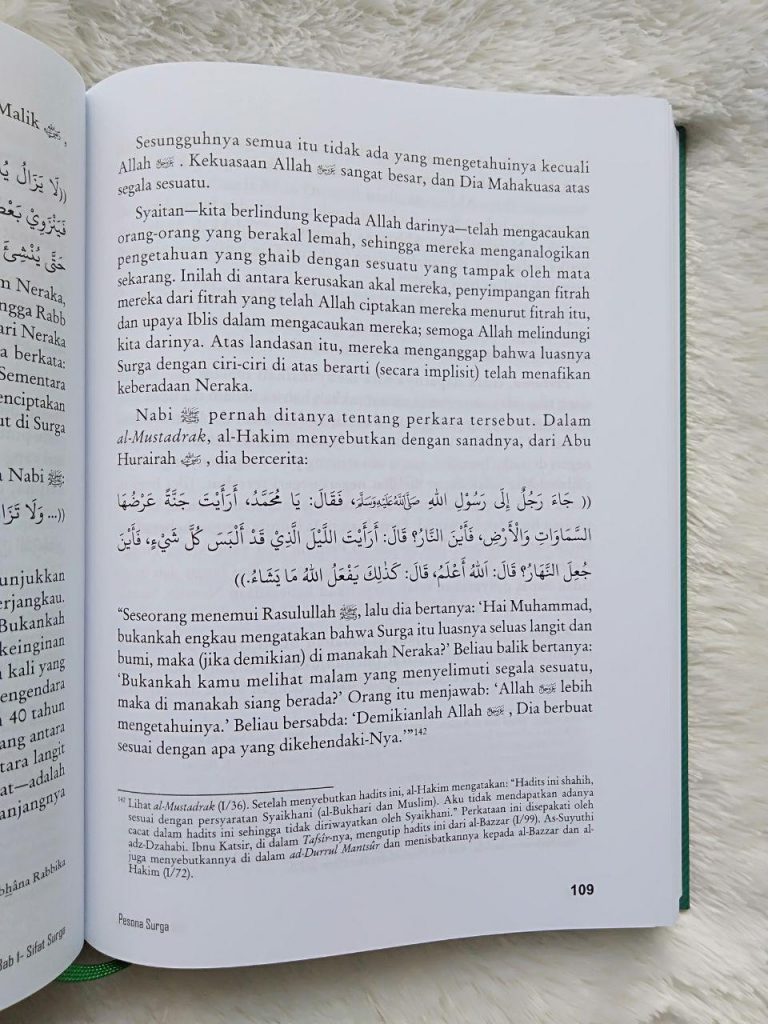 Malik ﷺ,
((لَا يَزَالُ
فَيَنْزَوِيْ بَعْضُ
حَتَّى يُنْشِئَ
Neraka,
ngga Rabb
ari Neraka
a berkata:
Sementara
enciptakan
ut di Surga
a Nabi ﷺ:
((... وَلَا تَزَا
unjukkan
erjangkau.
Bukankah
keinginan
kali yang
engendara
40 tahun
ang antara
tara langit
at—adalah
anjangnya
bhâna Rabbika
Bab I- Sifat Surga
Sesungguhnya semua itu tidak ada yang mengetahuinya kecuali
Allah. Kekuasaan Allah sangat besar, dan Dia Mahakuasa atas
segala sesuatu.
Syaitan—kita berlindung kepada Allah darinya—telah mengacaukan
orang-orang yang berakal lemah, sehingga mereka menganalogikan
pengetahuan yang ghaib dengan sesuatu yang tampak oleh mata
sekarang. Inilah di antara kerusakan akal mereka, penyimpangan fitrah
mereka dari fitrah yang telah Allah ciptakan mereka menurut fitrah itu,
dan upaya Iblis dalam mengacaukan mereka; semoga Allah melindungi
kita darinya. Atas landasan itu, mereka menganggap bahwa luasnya
Surga dengan ciri-ciri di atas berarti (secara implisit) telah menafikan
keberadaan Neraka.
Nabi ﷺ pernah ditanya tentang perkara tersebut. Dalam
al-Mustadrak, al-Hakim menyebutkan dengan sanadnya, dari Abu
Hurairah, dia bercerita:
(( جَاءَ رَجُلٌ إِلَى رَسُوْلِ اللهِ صَلَّى اللهُ عَلَيْهِ وَسَلَّمَ، فَقَالَ: يَا مُحَمَّدُ، أَرَأَيْتَ جَنَّةً عَرْضُهَا
السَّمَاوَاتِ وَالْأَرْضِ، فَأَيْنَ النَّارُ؟ قَالَ: أَرَأَيْتَ اللَّيْلَ الَّذِيْ قَدْ أَلْبَسَ كُلَّ شَيْءٍ، فَأَيْنَ
جُعِلَ النَّهَارُ؟ قَالَ: اَللهُ أَعْلَمُ، قَالَ: كَذَلِكَ يَفْعَلُ اللهُ مَا يَشَاءُ.))
“Seseorang menemui Rasulullah ﷺ, lalu dia bertanya: ‘Hai Muhammad,
bukankah engkau mengatakan bahwa Surga itu luasnya seluas langit dan
bumi, maka (jika demikian) di manakah Neraka?’ Beliau balik bertanya:
‘Bukankah kamu melihat malam yang menyelimuti segala sesuatu,
maka di manakah siang berada?’ Orang itu menjawab: ‘Allah lebih
mengetahuinya.’ Beliau bersabda: ‘Demikianlah Allah, Dia berbuat
sesuai dengan apa yang dikehendaki-Nya.’”142
142 Lihat al-Mustadrak (I/36). Setelah menyebutkan hadits ini, al-Hakim mengatakan: “Hadits ini shahih,
sesuai dengan persyaratan Syaikhani (al-Bukhari dan Muslim). Aku tidak mendapatkan adanya
cacat dalam hadits ini sehingga tidak diriwayatkan oleh Syaikhani.” Perkataan ini disepakati oleh
adz-Dzahabi. Ibnu Katsir, di dalam Tafsîr-nya, mengutip hadits ini dari al-Bazzar (I/99). As-Suyuthi
juga menyebutkannya di dalam ad-Durrul Mantsûr dan menisbatkannya kepada al-Bazzar dan al-
Hakim (I/72).
109
Pesona Surga